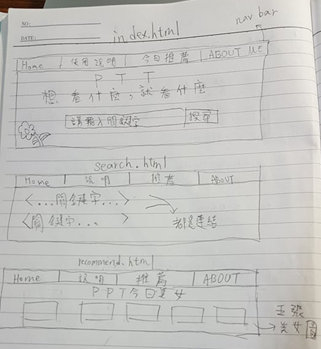 NO:
DATE:
index.html
nav bar
Home 使用說明 今日推薦 ABOUT ME
PTT
想看什麼,就看什麼
請輸入關鍵字 搜尋
search.html
Home 說明 推薦 About
<...關鍵字...>
<關鍵字...> 都是連結
recommend.html
Home 說明 推薦 ABOUT
PPT今日美女
五張
美女圖